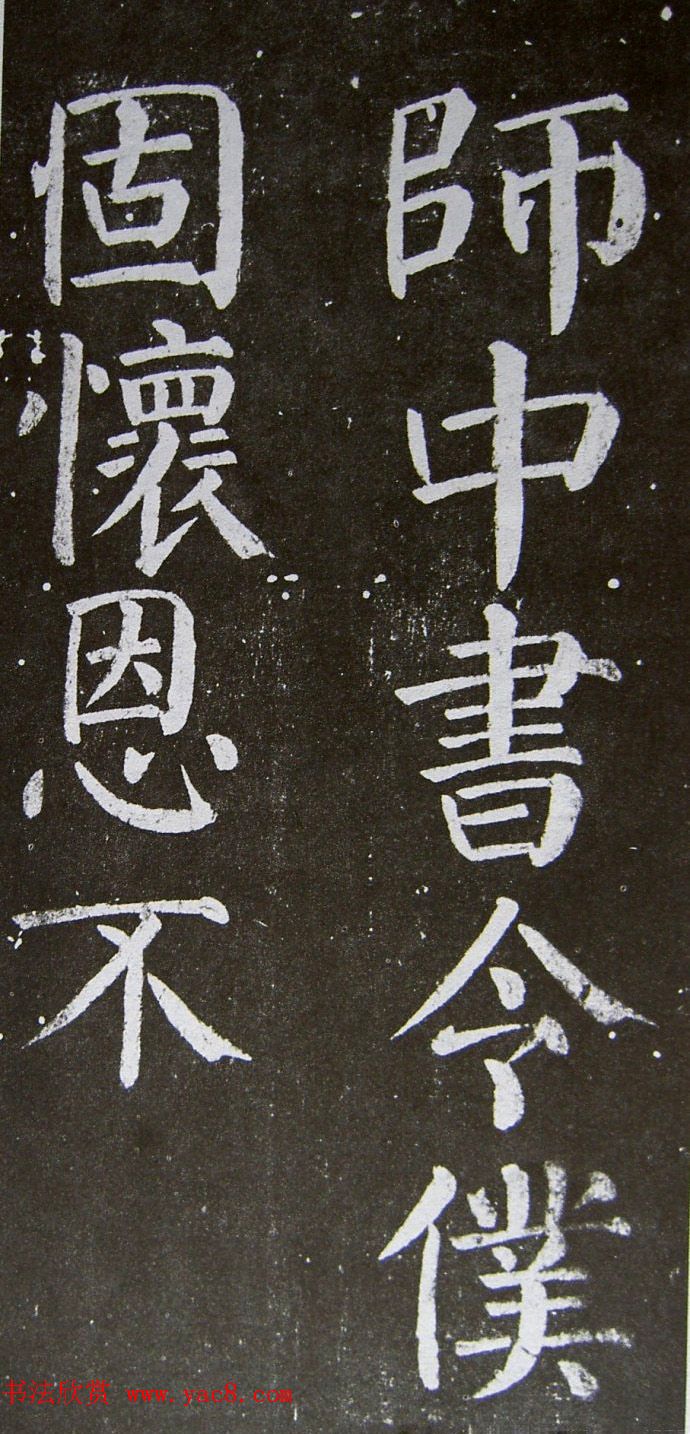 師中書令僕
固懷恩不
书法欣赏 www.yac8.com